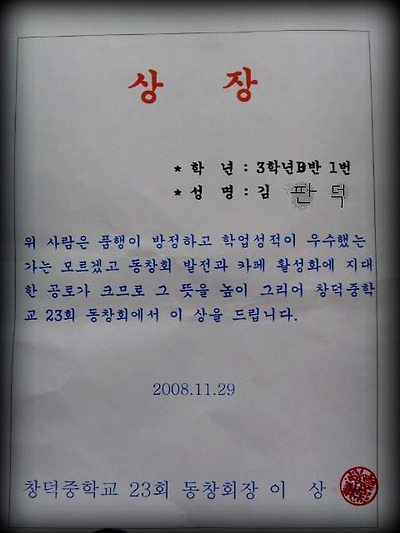 상 장
* 학 년 : 3학년B반 1번
* 성 명 : 김 판 덕
위 사람은 품행이 방정하고 학업성적이 우수했는
가는 모르겠고 동창회 발전과 카페 활성화에 지대
한 공로가 크므로 그 뜻을 높이 그리어 창덕중학
교 23회 동창회에서 이 상을 드립니다.
2008.11.29
창덕중학교 23회 동창회장 이 상